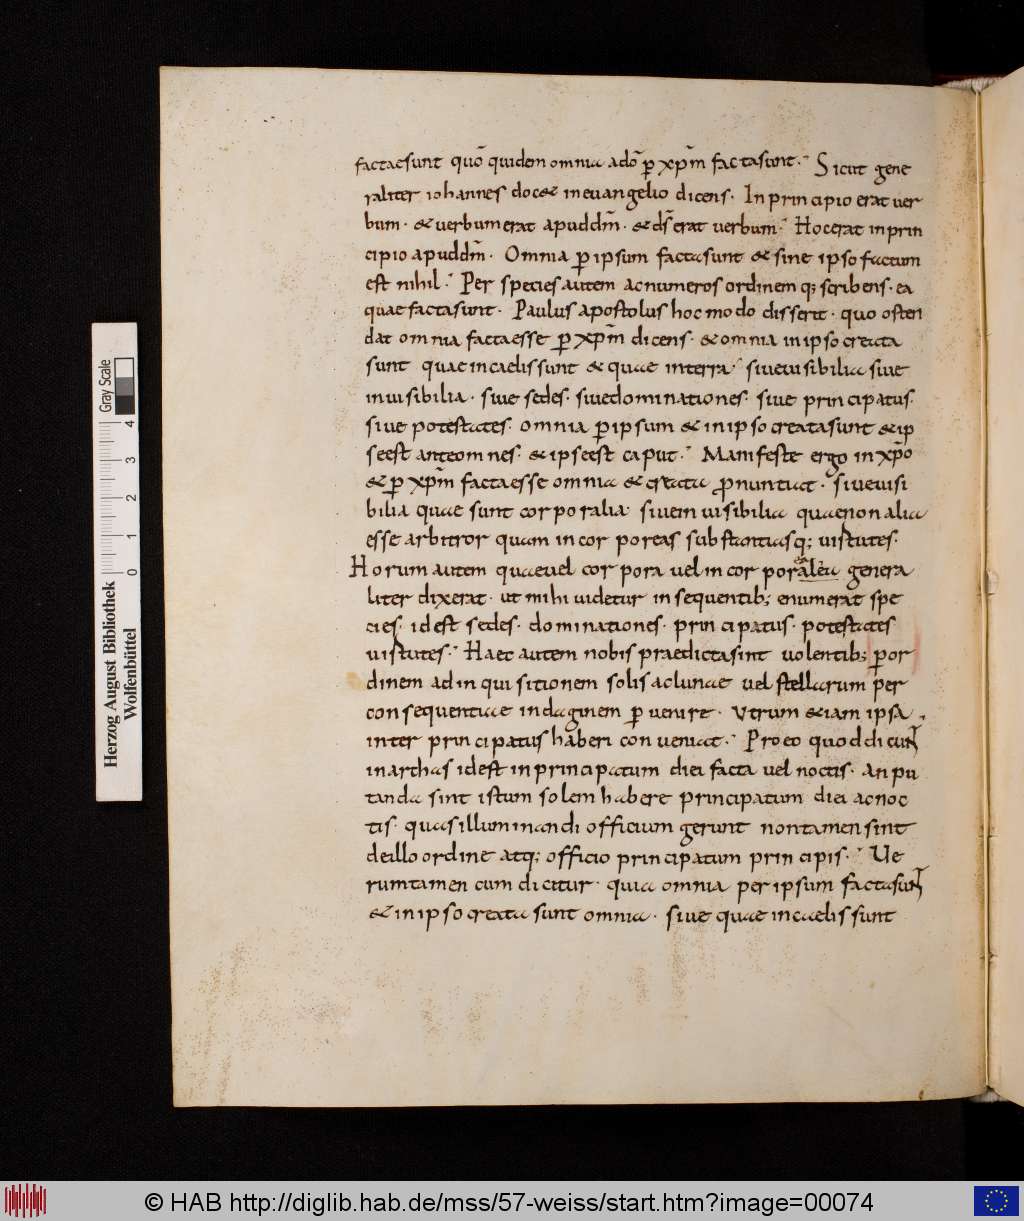 factaesunt quō quidem omnia adō ꝑ xp̄m factasunt. Sicut gene
raliter iohannes doc& ineuangelio dicens. In principio erat ver
bum. & verbumerat apuddm̄. & ds̄ erat verbum. Hocerat inprin
cipio apuddm̄. Omnia ꝑipsum factasunt & sine ipsofactum
est nihil. Per species autem acnumeros ordinem q; scribens. ea
quaefactasunt. Paulus apostolus hocmodo disserit. quo osten
dat omnia factaesse ꝑ xp̄m dicens. &omnia inipsocreata
sunt quae incaelissunt & quae interra. siueuisibilia siue
inuisibilia. siue sedes. siuedominationes. siue principatus.
siue potestates. omnia ꝑipsum & inipsocreatasunt &ip
seest anteomnes. & ipseest caput. Manifeste ergo inxp̄o
& ꝑ xp̄m factaesse omnia & creata ꝓnuntiat. siueuisi
bilia quae sunt corporalia siueinuisibilia quaenonalia
esse arbitror quam incorporeas substantiasq; uirtutes.
Horum autem quaeuel corpora uelincorporalea genera
liter dixerat. ut mihi uidetur insequentib; enumerat spe
cies. idest sedes. dominationes. principatus. potestates
uirtutes. Haec autem nobis praedictasint uolentib; ꝑor
dinem adinquisitionem solisaclunae uel stellarum per
consequentiae indaginem ꝑuenire. Vtrum &iam ipsa
inter principatus haberi conueniat. Proeo quoddicunt
inarchas idest inprincipatum diei facta uel noctis. anpu
tanda sint istum solemhabere principatum diei acnoc
tis. quasilluminandi officium gerunt nontamensint
deillo ordine atq; officio principatum principis. Ue
rumtamen cum dicitur. quia omnia peripsum factasunt
& inipsocreata sunt omnia. siue quae incaelissunt
Herzog August Bibliothek
Wolfenbüttel
0 1 2 3 4
Gray Scale
© HAB http://diglib.hab.de/mss/57-weiss/start.htm?image=00074